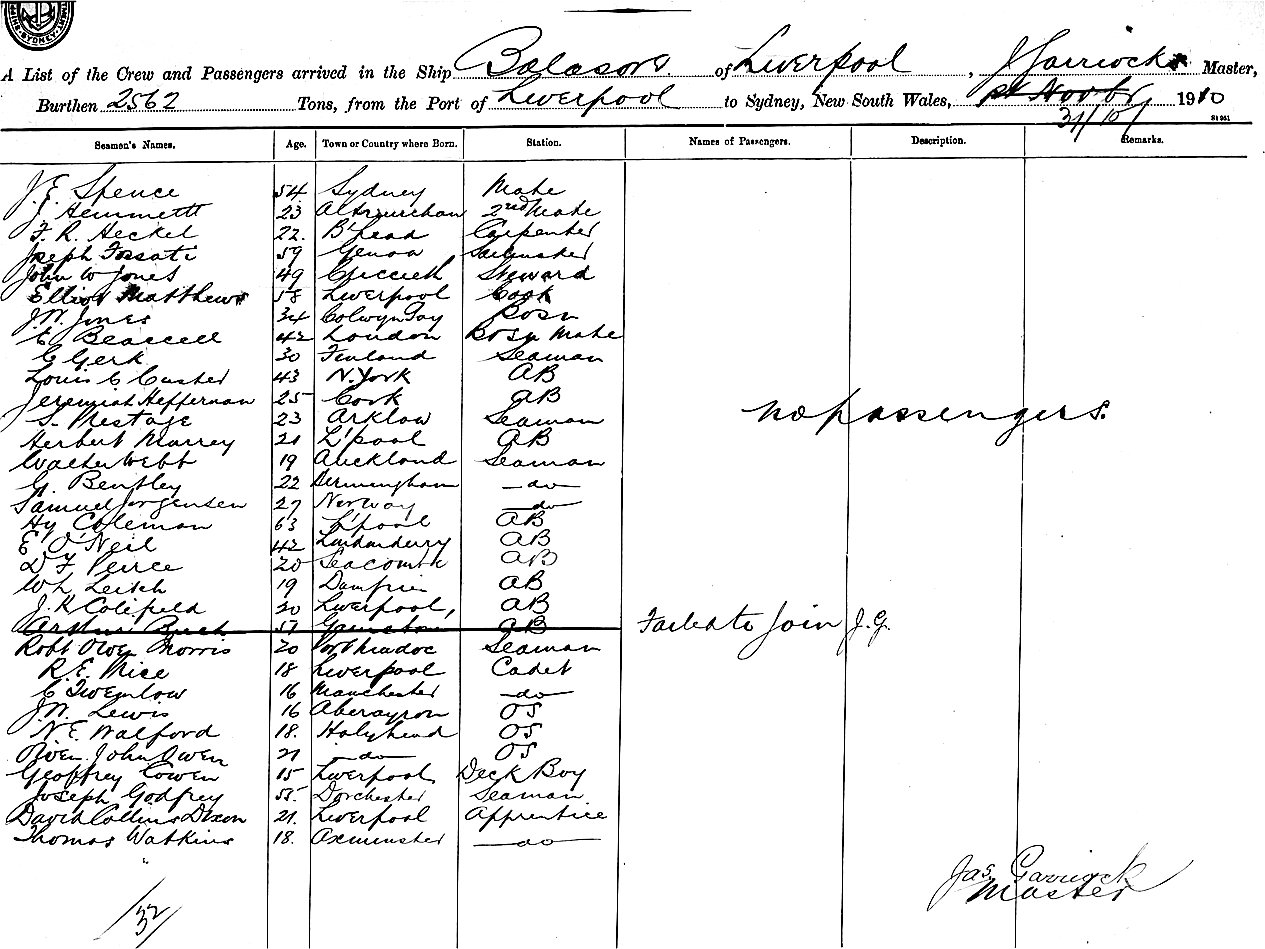 A List of the Crew and Passengers arrived in the Ship Balasore of Liverpool, J Garriock Master,
Burthen 2562 Tons, from the Port of Liverpool to Sydney, New South Wales, 1st Novbr 1910
31/10/
Seamen's Names. Age. Town or Country where Born. Station. Names of Passengers. Description. Remarks.
J. E. Spence 54 Sydney Mate
J. Hemmett 23 Altrincham 2nd Mate
F. R. Heckel 22. B'head Carpenter
Joseph Fossati 59 Genoa Sailmaker
John W Jones 49 Criccieth Steward
Elliot Matthews 58 Liverpool Cook
J. W. Jones 34 Colwyn Bay Bosn
42 London Bosn Mate
C Gerk 30 Finland Seaman
Louis C Custer 43 N. York AB
Jeremiah Heffernan 25 Cork AB
No passengers.
S. Mestage 23 Arklow Seaman
Herbert Murrey 21 L'pool AB
Walter Webb 19 Auckland Seaman
G. Bentley 22 Birmingham do
Samuel Jorgensen 27 Norway do
Hy Coleman 63 L'pool AB
E O'Neil 42 Londonderry AB
D F Peirce 20 Seacombe AB
Wh Leitch 19 Dumfries AB
J. K Colefield 20 Liverpool, AB
Arthur Burch 57 AB Failed to join J. G.
Robt Owen Morris 20 Portmadoc Seaman
R. E. Mice 18 Liverpool Cadet
C Twemlow 16 Manchester do
J. W. Lewis 16 Aberayron OS
N. E. Walford 18. Holyhead OS
Owen John Owen 21 do OS
Geoffrey Cowen 15 Liverpool Deck Boy
Joseph Godfrey 55. Dorchester Seaman
David Collins Dixon 21. Liverpool Apprentice
Thomas Watkins 18. Axminster do
Jas. Garriock
Master
/32/